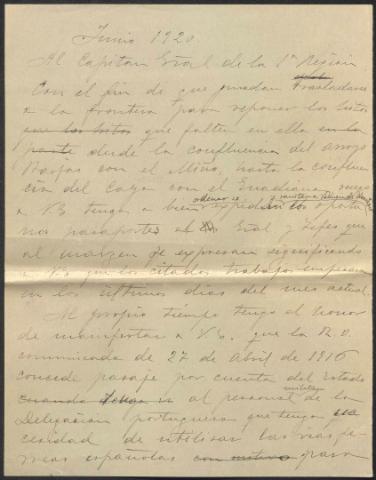 Junio 1920
Al Capitan Gral de la 1ª Region
Con el fin de que puedan trasladarse
a la frontera para reponer los hitos
que los hitos que falten en ella en la
parte desde la confluencia del arroyo
con el Miño, hasta la confluen
cia del Caya con el Guadiana ruego
a V.E. tenga a bien ordenar se expidan los oportu
nos pasaportes al Gral y Jefes que
al margen se expresan significando
a V.E. que los citados trabajos empiezan
en los últimos dias del mes actual.
Al propio tiempo tengo el honor
de manifestar a V.E. que la R.O.
comunicada de 27 de Abril de 1916
concede pasaje por cuenta del Estado
cuando al personal militar de la
Delegacion portuguesa que tenga ne
cesidad de utilizar las vias fe
rreas españolas con motivo para